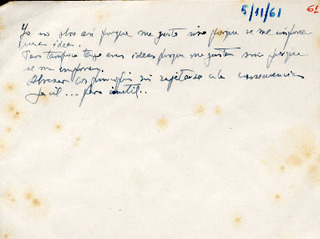 5/11/61
61
Yo no obro así porque me guste sino porque se me imponen
unas ideas.
Pero tampoco tengo esas ideas porque me gustan sino porque
se me imponen.
Abrazar los principios sin sujetarse a la consecuencia
fácil... pero inútil..